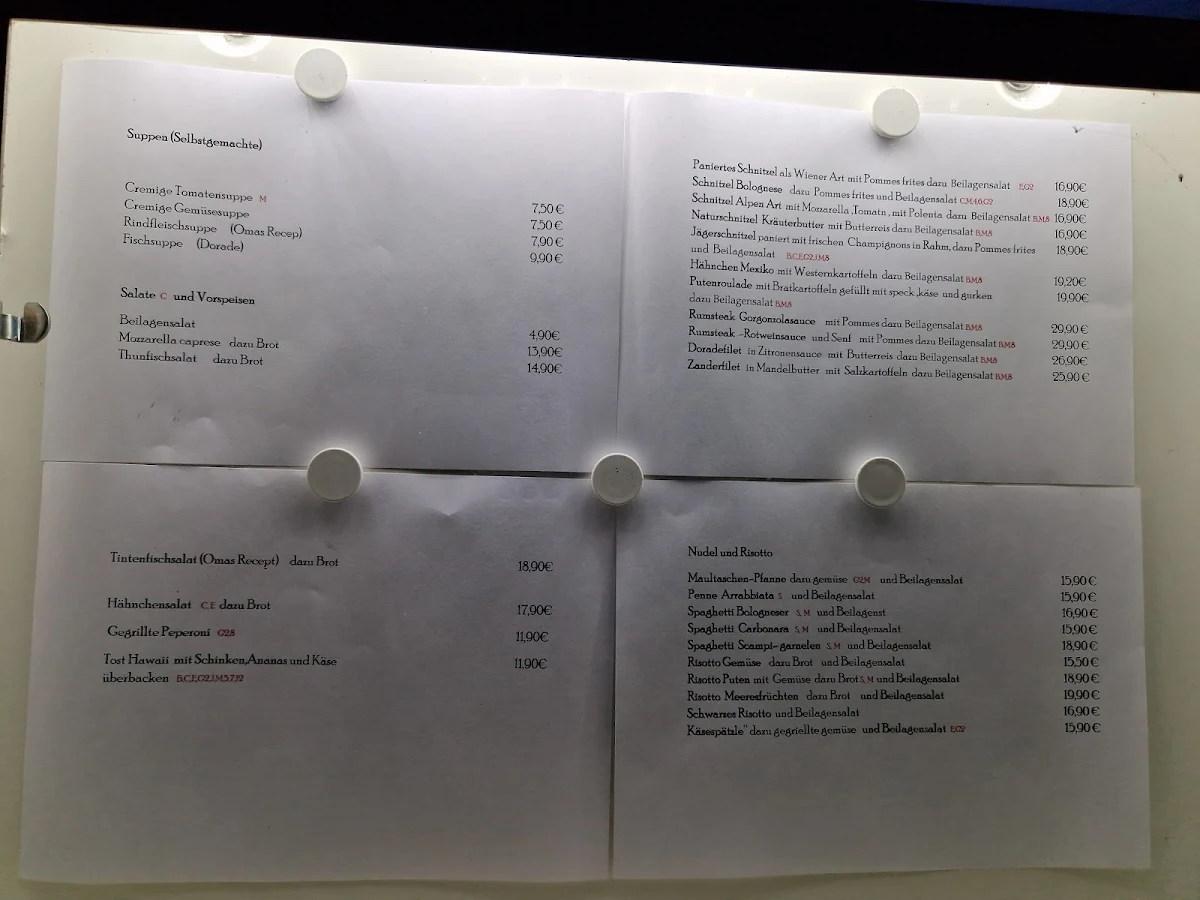 Suppen (Selbstgemachte)
Cremige Tomatensuppe M 7,50 €
Cremige Gemüsesuppe 7,50 €
Rindfleischsuppe (Omas Recep) 7,90 €
Fischsuppe (Dorade) 9,90 €
Salate C und Vorspeisen
Beilagensalat 4,90€
Mozzarella caprese dazu Brot 13,90€
Thunfischsalat dazu Brot 14,90€
Paniertes Schnitzel als Wiener Art mit Pommes frites dazu Beilagensalat E,G2 16,90€
Schnitzel Bolognese dazu Pommes frites und Beilagensalat C,M,4,6,G2 18,90€
Schnitzel Alpen Art mit Mozzarella ,Tomatn , mit Polenta dazu Beilagensalat B,M,8 16,90€
Naturschnitzel Kräuterbutter mit Butterreis dazu Beilagensalat B,M,8 16,90€
Jägerschnitzel paniert mit frischen Champignons in Rahm, dazu Pommes frites 18,90€
und Beilagensalat B,C,E,G2,I,M,8
Hähnchen Mexiko mit Westernkartoffeln dazu Beilagensalat B,M,8 19,20€
Putenroulade mit Bratkartoffeln gefüllt mit speck ,käse und gurken 19,90€
dazu Beilagensalat B,M,8
Rumsteak Gorgonzolasauce mit Pommes dazu Beilagensalat B,M,8 29,90 €
Rumsteak -Rotweinsauce und Senf mit Pommes dazu Beilagensalat B,M,8 29,90 €
Doradefilet in Zitronensauce mit Butterreis dazu Beilagensalat B,M,8 26,90€
Zanderfilet in Mandelbutter mit Salzkartoffeln dazu Beilagensalat B,M,8 25,90 €
Tintenfischsalat (Omas Recept) dazu Brot 18,90€
Hähnchensalat C,E dazu Brot 17,90€
Gegrillte Peperoni G2,8 11,90€
Tost Hawaii mit Schinken,Ananas und Käse 11,90€
überbacken B,C,E,G2,I,M,5,7,12
Nudel und Risotto
Maultaschen-Pfanne dazu gemüse G2,M und Beilagensalat 15,90 €
Penne Arrabbiata S und Beilagensalat 15,90 €
Spaghetti Bologneser S, M und Beilagenst 16,90€
Spaghetti Carbonara S, M und Beilagensalat 15,90€
Spaghetti Scampi- garnelen S, M und Beilagensalat 18,90 €
Risotto Gemüse dazu Brot und Beilagensalat 15,50 €
Risotto Puten mit Gemüse dazu Brot S, M und Beilagensalat 18,90 €
Risotto Meeresfrüchten dazu Brot und Beilagensalat 19,90€
Schwarzes Risotto und Beilagensalat 16,90 €
Käsespätzle" dazu gegriellte gemüse und Beilagensalat E,G2 15,90 €